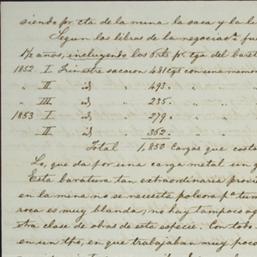 siendo pr. cta de la mina la saca y la
Segun los libros de la negociacn. fu
1½ años, incluyendo los 5 rls pr. cga del barat
1852 I. Trimestre sacaron 481 cgs con una memor
" II " id 493. "
" III " id 235. "
1853 I " id 279. "
" II " id 362. "
Total 1,850 cargas que costa
Lo, que da por una carga metal un g
Esta baratura tan extraordinaria provi
en la mina no se necesita polvora pa. tum
roca es muy blanda; no hay tampoco ag
otra clase de obras de esta especie. Con todo
en un tpo, en que trabajaban muy poco